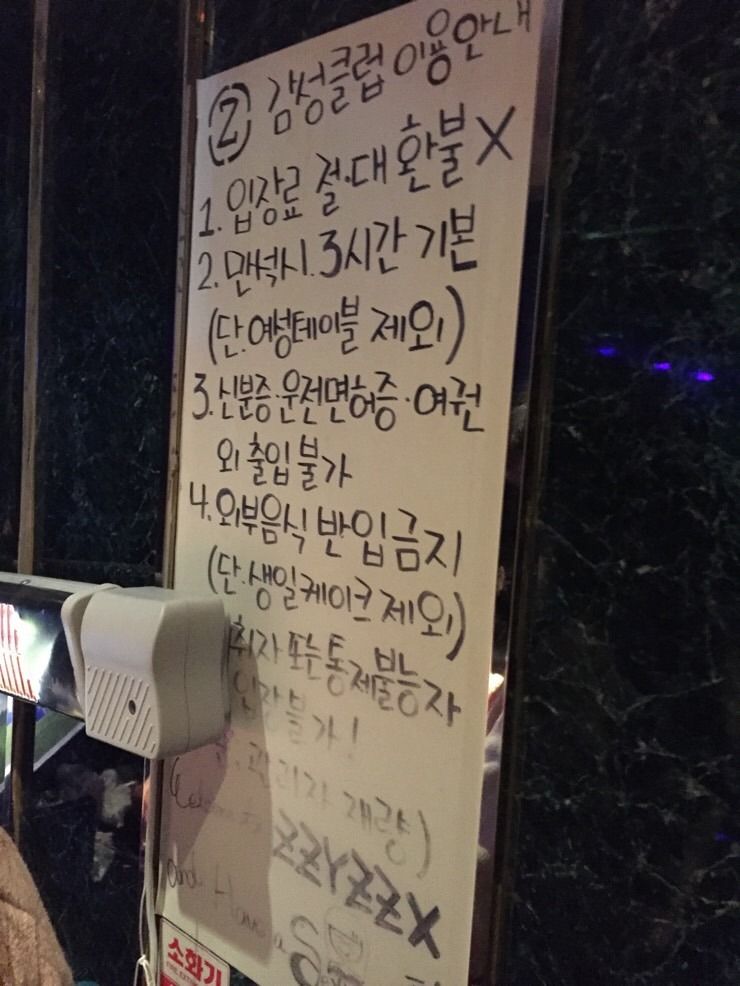 Z 감성클럽 이용안내
1. 입장료 절·대 환불 X
2. 만석시. 3시간 기본
(단. 여성테이블 제외)
3. 신분증·운전면허증·여권
외 출입불가
4. 외부음식 반입금지
(단. 생일케이크 제외)
취자 또는 통제불능자
입장불가!
관리자 재량)
ZZYZZX
and Have a
소화기